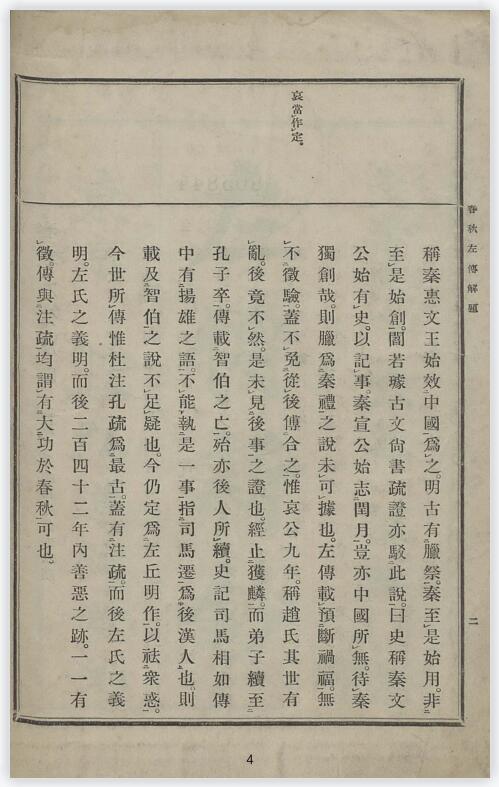 哀當作定。
稱秦惠文王始效中國爲之。明古有臘祭。秦至是始用。非
至是始創。閻若璩古文尙書疏證亦駁此說。曰史稱秦文
公始有史。以記事。秦宣公始志閏月。豈亦中國所無。待秦
獨創哉。則臘爲秦禮之說未可據也。左傳載預斷禍福。無
不徵驗。蓋不免從後傅合之。惟哀公九年。稱趙氏其世有
亂。後竟不然。是未見後事之證也。經止獲麟。而弟子續至
孔子卒。傳載智伯之亡。殆亦後人所續。史記司馬相如傳
中有揚雄之語。不能執是一事指司馬遷爲後漢人也。則
載及智伯之說不足疑也。今仍定爲左丘明作。以祛衆惑。
今世所傳惟杜注孔疏爲最古。蓋有注疏。而後左氏之義
明。左氏之義明。而後二百四十二年內善惡之跡。一一有
徵。傳與注疏均謂有大功於春秋可也。
春秋左傳解題
二
4